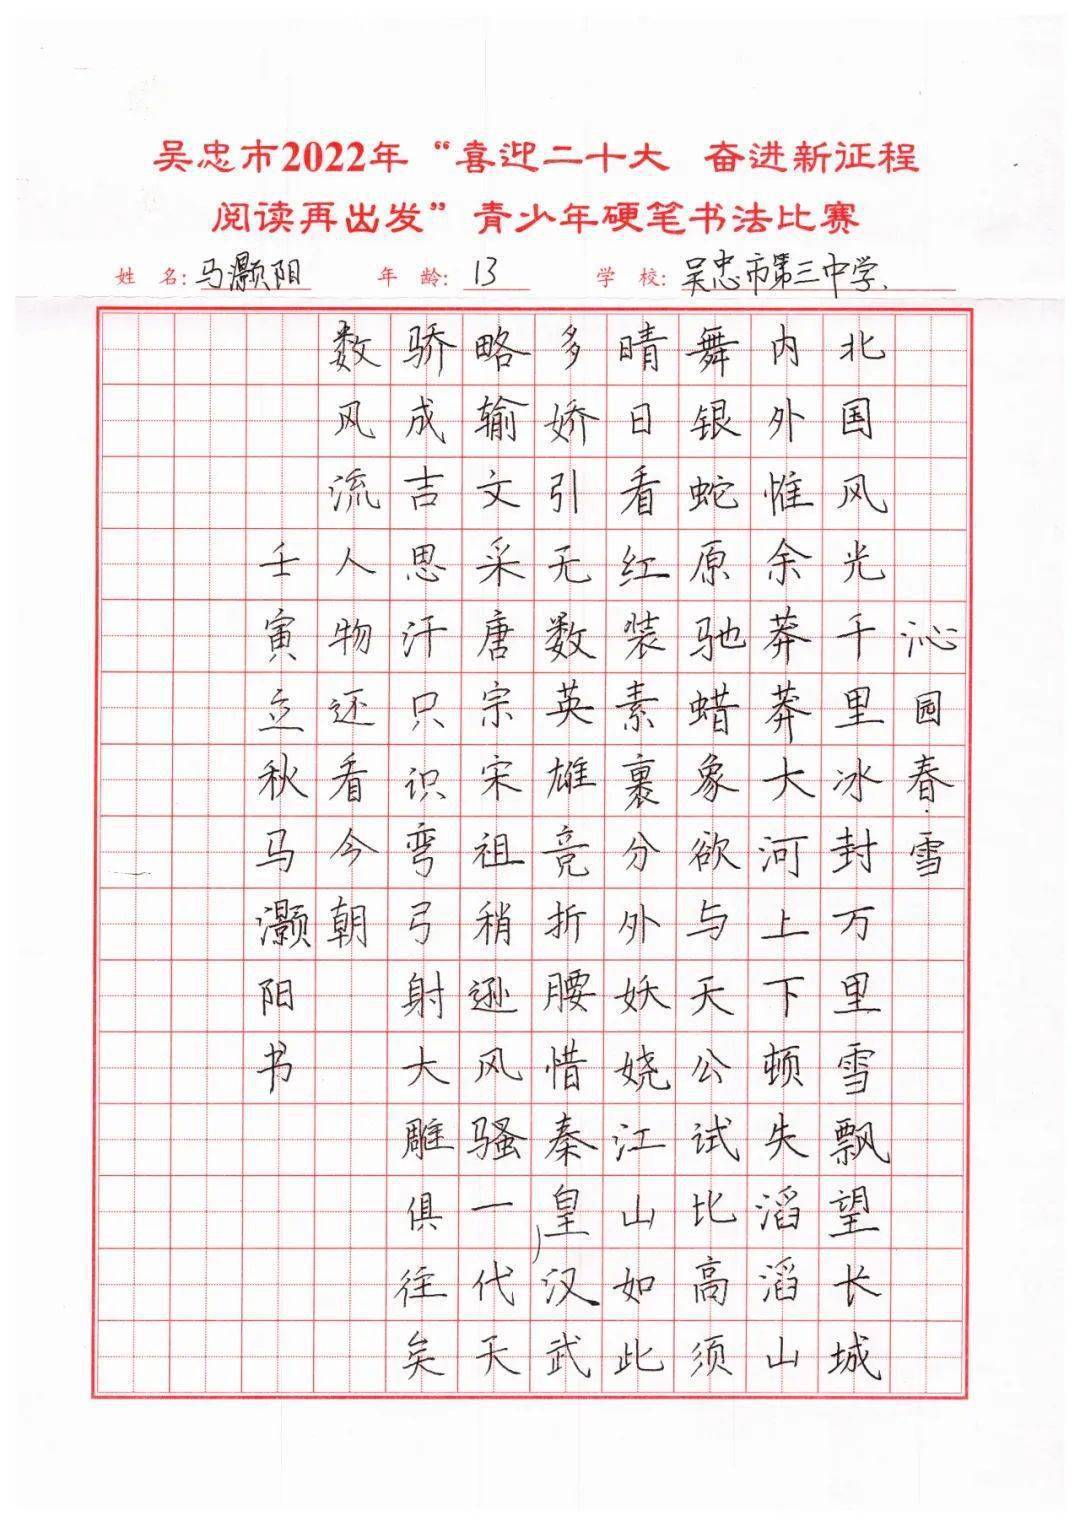 吴忠市2022年“喜迎二十大 奋进新征程
阅读再出发”青少年硬笔书法比赛
姓 名: 马灏阳 年 龄: 13 学 校: 吴忠市第三中学.
沁园春·雪
北国风光千里冰封万里雪飘望长城
内外惟余莽莽大河上下顿失滔滔山
舞银蛇原驰蜡象欲与天公试比高须
晴日看红装素裹分外妖娆江山如此
多娇引无数英雄竞折腰惜秦皇汉武
略输文采唐宗宋祖稍逊风骚一代天
骄成吉思汗只识弯弓射大雕俱往矣
数风流人物还看今朝
壬寅立秋马灏阳书